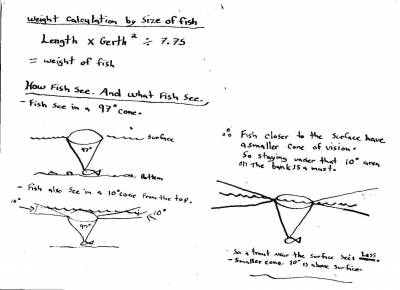 weight calculation by Size of fish
Length x Gerth² ÷ 7.75
= weight of fish
How Fish See. And what Fish See.
- Fish see in a 97° cone.
surface
97°
Bottom
- Fish also see in a 10° cone from the top.
10°
10°
97°
Fish closer to the surface have
a smaller cone of vision.
So staying under that 10° area
on the bank is a must.
So a trout near the surface sees Less.
- Smaller cone. 10° is above surface.